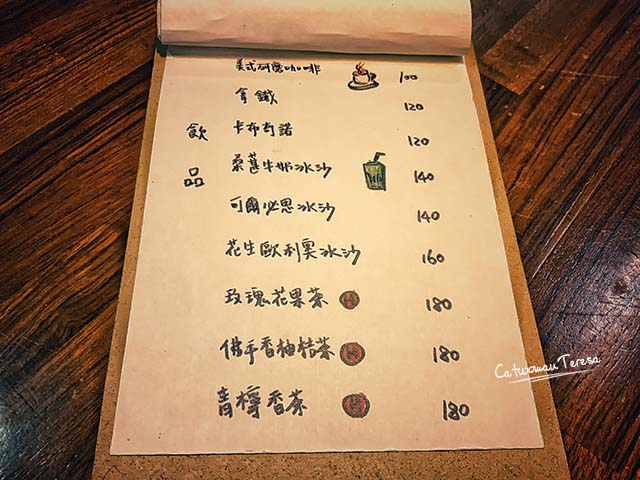 飲品
美式研磨咖啡 100
拿鐵 120
卡布奇諾 120
桑葚牛奶冰沙 140
可爾必思冰沙 140
花生歐利奧冰沙 160
玫瑰花果茶 180
佛手香柚桔茶 180
青檸香茶 180
Catwoman Teresa